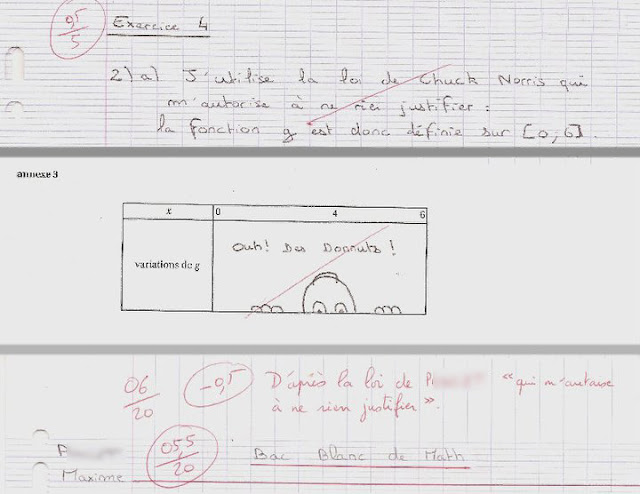 0,5/5
Exercice 4
2) a) J'utilise la loi de Chuck Norris qui
m'autorise à ne rien justifier :
la fonction g est donc définie sur [0;6].
annexe 3
x 0 4 6
variations de g
Ouh! Des Donnuts !
06/20 -0,5 D'après la loi de P "qui m'autorise
à ne rien justifier".
P
05,5/20 Bac Blanc de Math
Maxime